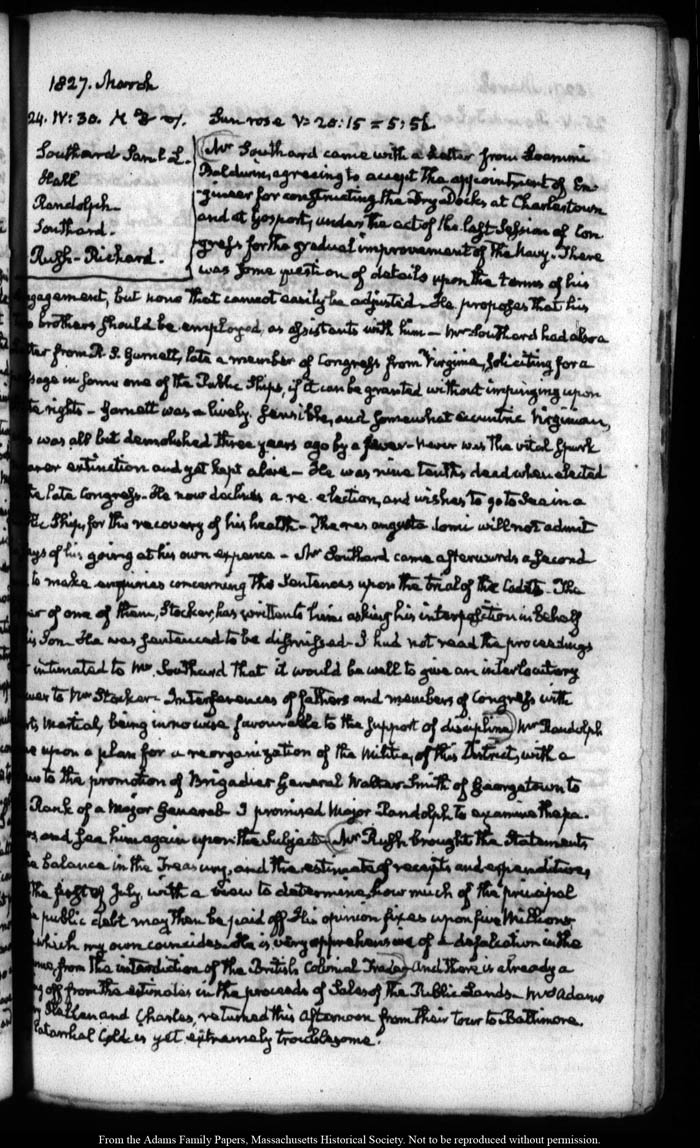 1827. March
24. IV: 30. Sun rose V: 20:15 = 5:52
Southard Saml L.
Hall
Randolph
Southard.
Rush - Richard.
Mr Southard came with a Letter from Loammi
Baldwin, agreeing to accept the appointment of En-
gineer for constructing the Dry Docks at Charlestown
and at Gosport, under the act of the last Session of Con-
gress for the gradual improvement of the Navy. There
was some question of details upon the terms of his
ngagement, but none that cannot easily be adjusted - He proposes that his
brothers should be employed, as assistants with him - Mr Southard had also a
tter from R. S. Garnett, late a member of Congress from Virginia, soliciting for a
ssage in some one of the Public Ships, if it can be granted without impinging upon
rights - Garnett was a lively, sensible, and somewhat eccentric Virginian,
was all but demolished three years ago by a fever - never was the vital spark
earer extinction and yet kept alive - He was nine tenths dead when elected
late Congress - He now declines a re-election, and wishes to go to Sea in a
Ship, for the recovery of his health - The res angusta domi will not admit
ys of his going at his own expence - Mr Southard came afterwards a second
to make enquiries concerning the Sentences upon the trial of the Cadets. The
er of one of them, Stocker, has written to him asking his interposition in behalf
is Son. He was sentenced to be dismissed - I had not read the proceedings
intimated to Mr Southard that it would be well to give an interlocutory
wer to Mr Stocker - Interferences of fathers and members of Congress with
rts martial, being in no wise favourable to the support of discipline, Mr Randolph
e upon a plan for a reorganization of the Militia, of this District, with a
ew to the promotion of Brigadier General Walter Smith of Georgetown to
Rank of a Major General - I promised Major Randolph to examine the pa-
rs and see him again upon the subject - Mr Rush brought the Statements
e balance in the Treasury, and the estimate of receipts and expenditures
the first of July, with a view to determine how much of the principal
public debt may then be paid off. His opinion fixes upon five Millions
which my own coincides - He is very apprehensive of a defalcation in the
me from the interdiction of the British Colonial Trade, And there is already a
off from the estimates in the proceeds of Sales of the Public Lands - Mrs Adams
Hellen and Charles, returned this afternoon from their tour to Baltimore.
Catarrhal Cold is yet extremely troublesome.
From the Adams Family Papers, Massachusetts Historical Society. Not to be reproduced without permission.